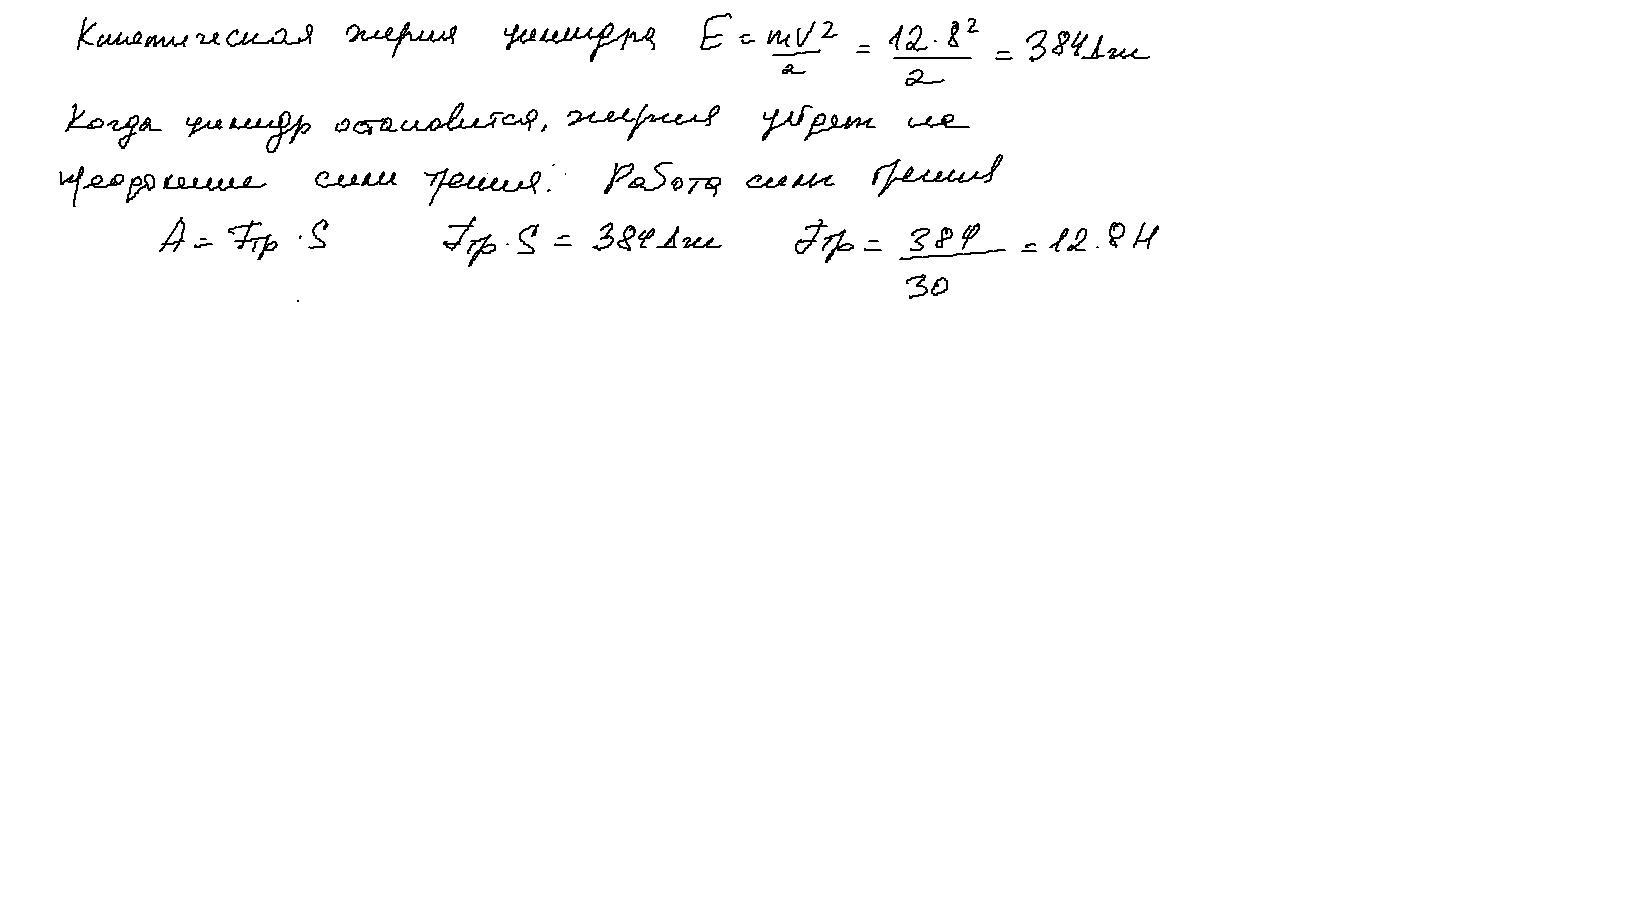 Кинетическая энергия цилиндра E = mv²/2 = 12·8²/2 = 384 Дж
Когда цилиндр остановится, энергия уйдет на
преодоление силы трения. Работа силы трения
A = Fтр · S Fтр · S = 384 Дж Fтр = 384/30 = 12.8 Н